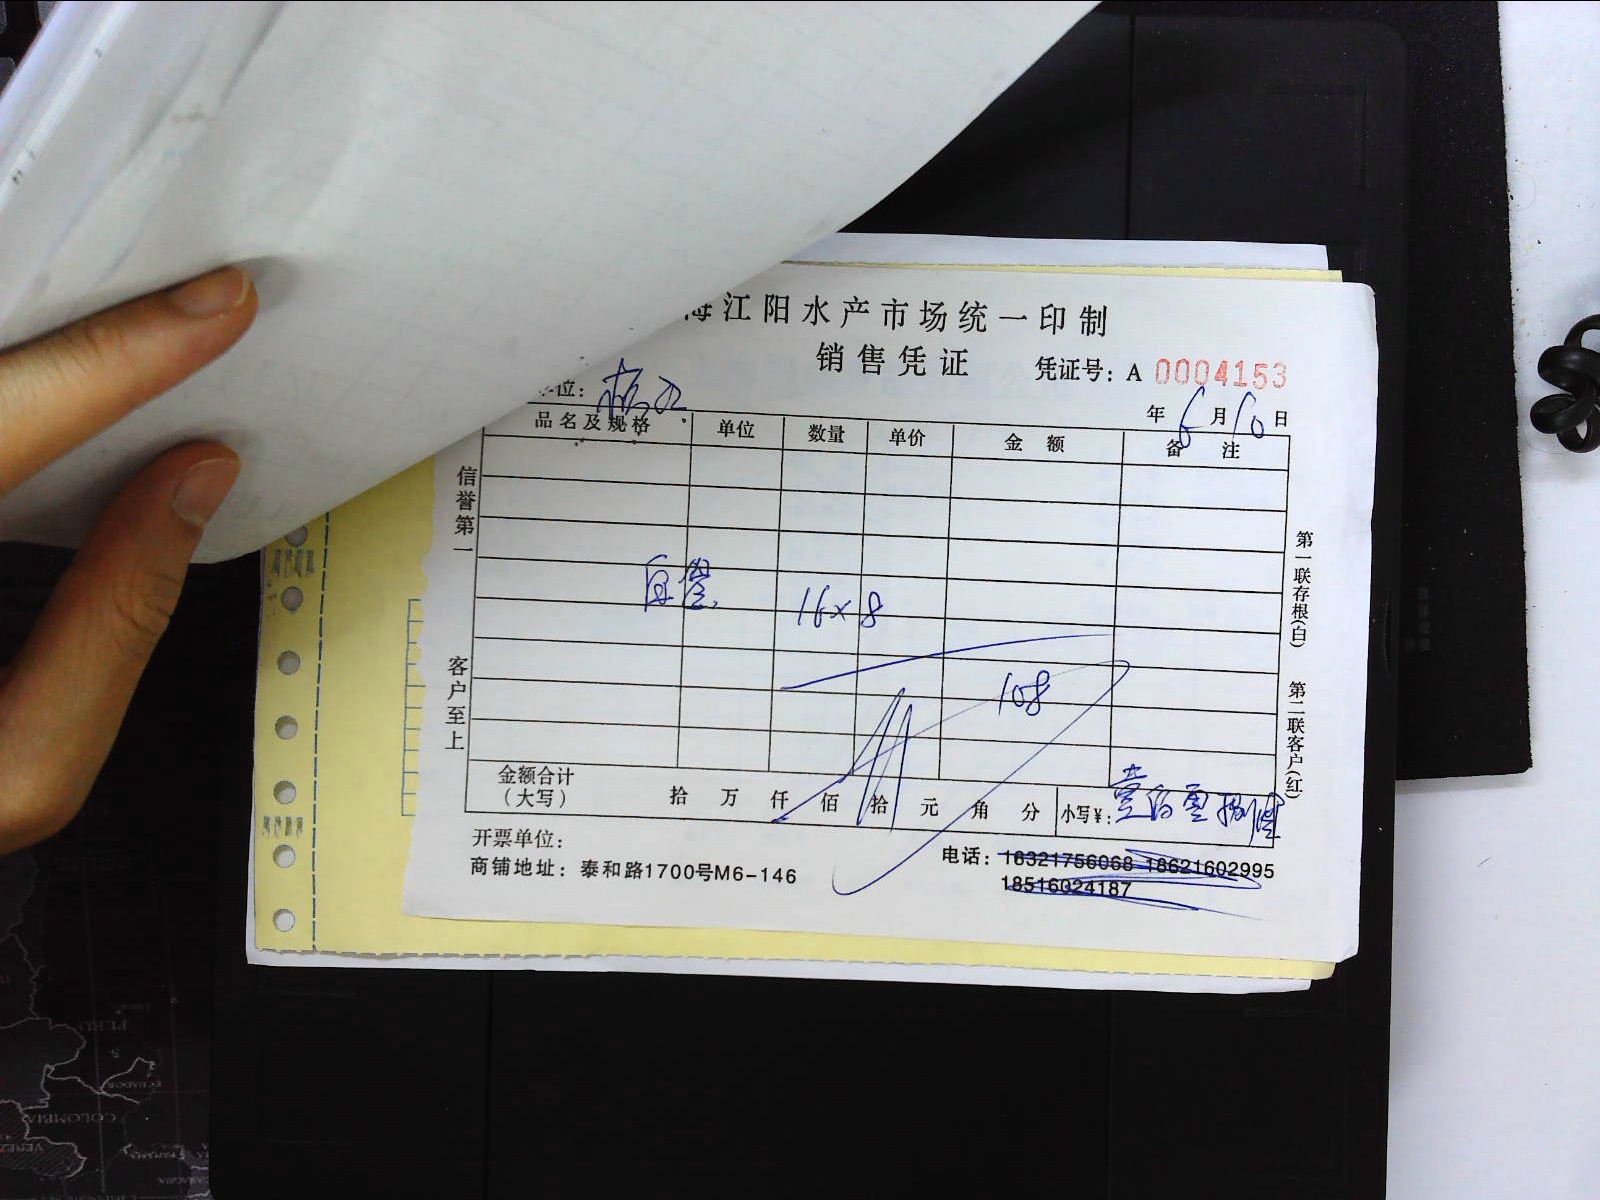 海江阳水产市场统一印制
销售凭证 凭证号：A 0004153
位：
年 6 月 10 日
品名及规格 单位 数量 单价 金 额 备 注
信誉第一
客户至上
16×8
108
金额合计
（大写） 拾 万 仟 佰 拾 元 角 分 小写¥：壹佰零捌
开票单位：
商铺地址：泰和路1700号M6-146
电话：18321756068 18621602995
18516024187
第一联存根(白)
第二联客户(红)